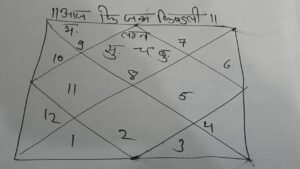 ॥ आज कि जन्म कुण्डली ॥
लग्न
9 7
10 सु च बु 6
8
11 5
12 4
1 2 3